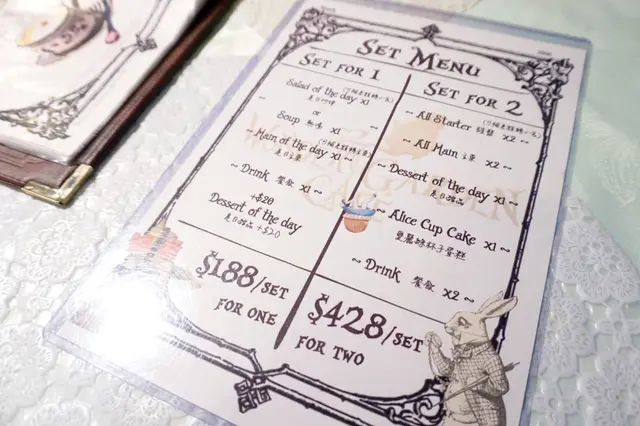 SET MENU
SET FOR 1
Salad of the day x1
是日沙律
or
Soup 餐湯 x1
~ Main of the day x1 ~
是日主菜
~ Drink 餐飲 x1 ~
+$20
Dessert of the day
是日甜品 +$20
$188/SET
FOR ONE
SET FOR 2
~ All Starter 頭盤 x2 ~
~ All Main 主菜 x2 ~
~ Dessert of the day x1 ~
是日甜品
~ Alice Cup Cake x1 ~
愛麗絲杯子蛋糕
~ Drink 餐飲 x2 ~
$428/SET
FOR TWO